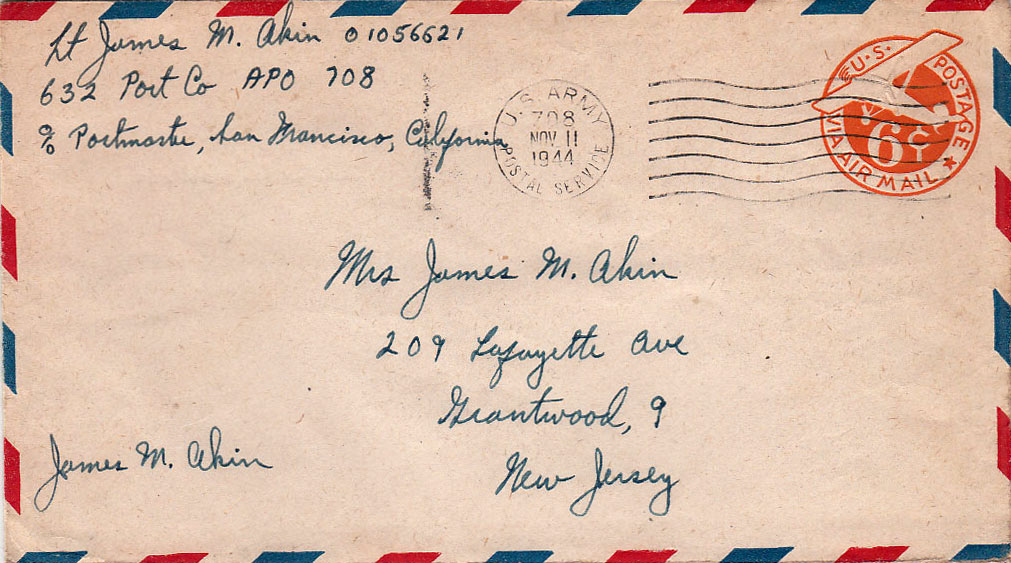 Lt James M. Akin 01056621
632 Port Co APO 708
c/o Postmaster, San Francisco, California
U.S. ARMY
708
NOV 11
1944
POSTAL SERVICE
U.S. POSTAGE
6¢
VIA AIR MAIL
Mrs James M. Akin
209 Lafayette Ave
Grantwood, 9
New Jersey
James M. Akin